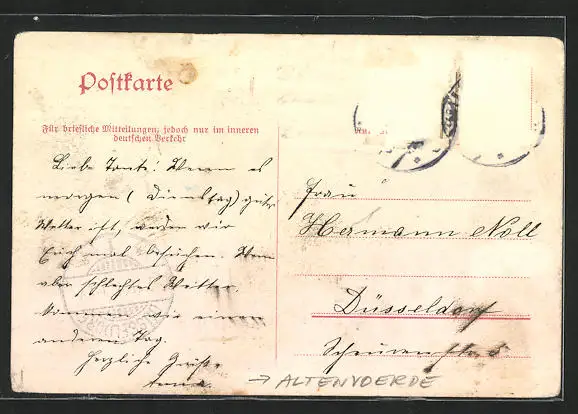 Postkarte
Für briefliche Mitteilungen, jedoch nur im inneren
deutschen Verkehr
Liebe Tante! Wenn es
morgen (Dienstag) gutes
Wetter ist, werden wir
Euch mal besuchen. Wenn
aber schlechtes Wetter
kommen wir einen
anderen Tag.
Herzliche Grüße
Frau
Hermann Noll
Düsseldorf
→ ALTENVOERDE